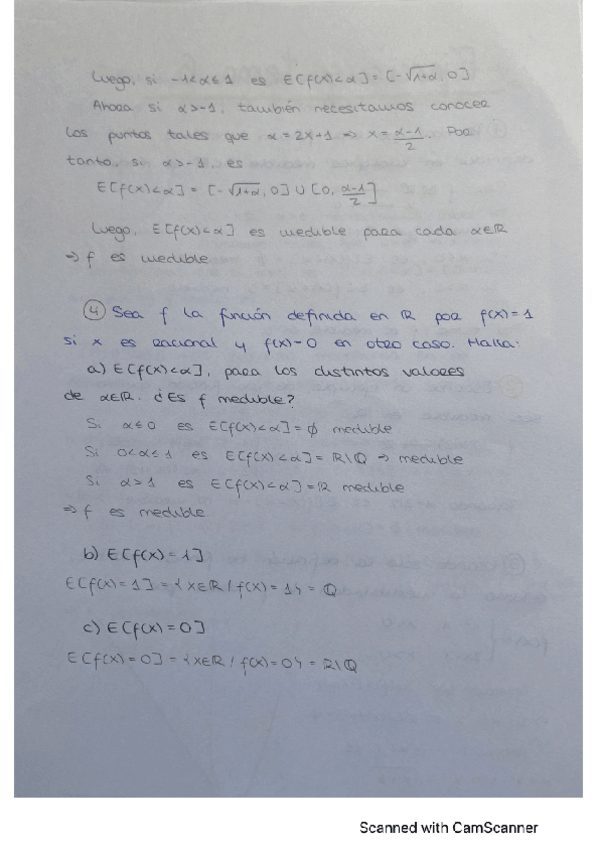 Luego, si -1<α≤1 es E[f(x)<α]=[-√1+α, 0]
Ahora si α>-1, también necesitamos conocer
los puntos tales que α=2x+1 ⇒ x=α-1/2. Por
tanto, si α>-1, es
E[f(x)<α] = [-√1+α, 0] ∪ [0, α-1/2]
Luego, E[f(x)<α] es medible para cada α∈ℝ
⇒ f es medible
④ Sea f la función definida en ℝ por f(x)=1
si x es racional y f(x)=0 en otro caso. Halla:
a) E[f(x)<α], para los distintos valores
de α∈ℝ. ¿Es f medible?
Si α≤0 es E[f(x)<α]=∅ medible
Si 0<α≤1 es E[f(x)<α]=ℝ\ℚ ⇒ medible
Si α>1 es E[f(x)<α]=ℝ medible
⇒ f es medible
b) E[f(x)=1]
E[f(x)=1] = {x∈ℝ / f(x)=1} = ℚ
c) E[f(x)=0]
E[f(x)=0] = {x∈ℝ / f(x)=0} = ℝ\ℚ
Scanned with CamScanner